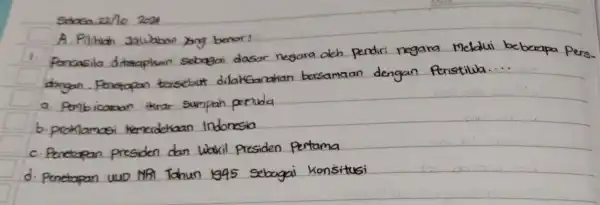 Selasa 22/10 2024
A. Pilihlah Jawaban yang benar!
1. Pancasila ditetapkan sebagai dasar negara oleh pendiri negara Melalui beberapa Pers-
dangan. Penetapan tersebut dilaksanakan bersamaan dengan Peristiwa....
a. Pembicaraan ikrar sumpah pemuda
b. proklamasi kemerdekaan Indonesia
c. Penetapan presiden dan wakil Presiden Pertama
d. Penetapan UUD NRI Tahun 1995 Sebagai Konsitusi